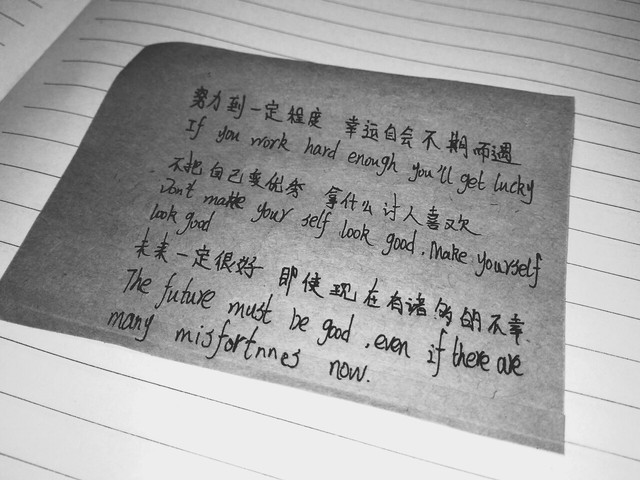 努力到一定程度 幸运自会不期而遇
If you work hard enough you'll get lucky
不把自己变优秀 拿什么讨人喜欢
Don't make your self look good, Make yourself
look good
未来一定很好 即使现在有诸多的不幸
The future must be good, even if there are
many misfortnnes now.